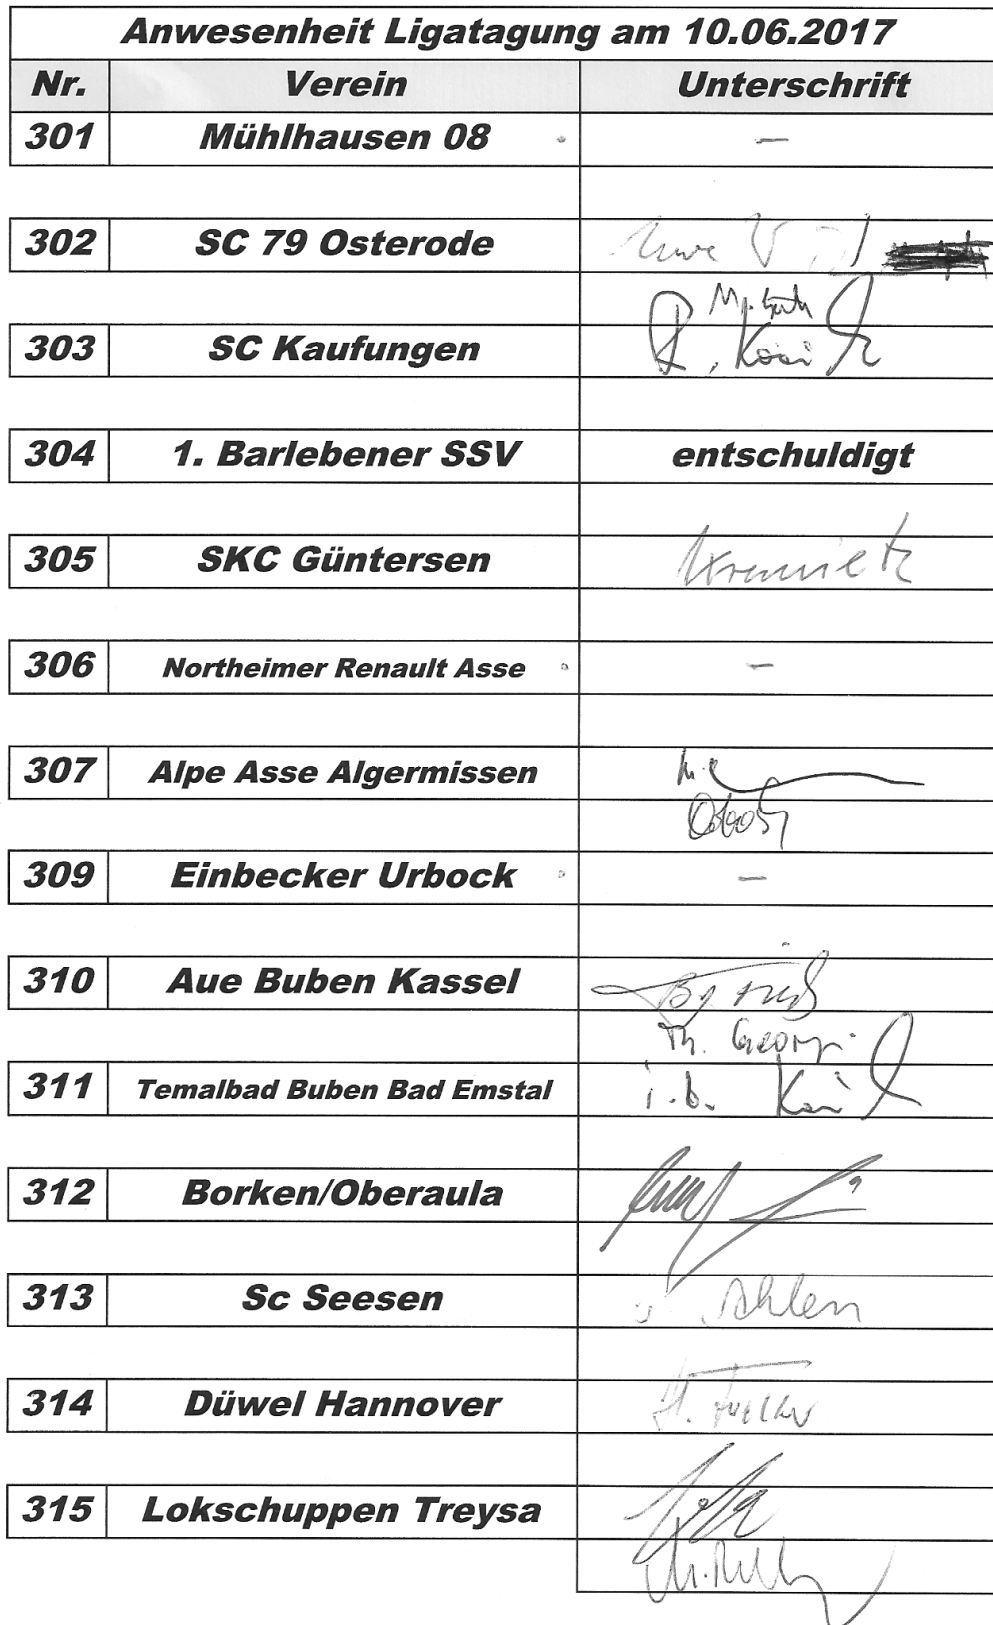 Anwesenheit Ligatagung am 10.06.2017
Nr. Verein Unterschrift
301 Mühlhausen 08 –
302 SC 79 Osterode Uwe
303 SC Kaufungen
304 1. Barlebener SSV entschuldigt
305 SKC Güntersen
306 Northeimer Renault Asse –
307 Alpe Asse Algermissen
309 Einbecker Urbock –
310 Aue Buben Kassel
Th. Georgi
311 Temalbad Buben Bad Emstal
312 Borken/Oberaula
313 Sc Seesen Ahlen
314 Düwel Hannover
315 Lokschuppen Treysa